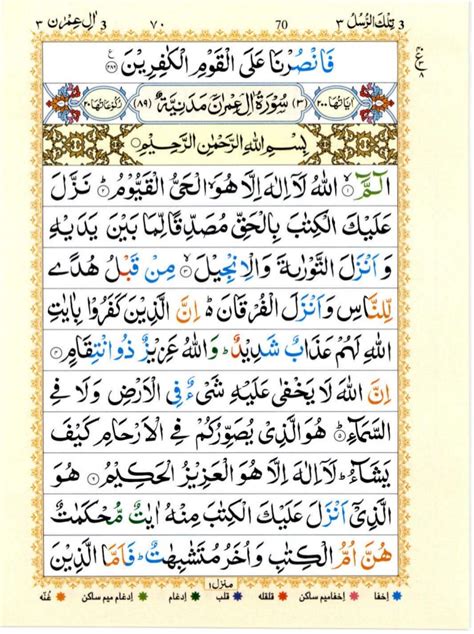 تِلْكَ الرُّسُلُ ٣ 3 70 ٧٠ اٰلِ عِمْرٰن ٣ 3
ع ٨
فَانْصُرْنَا عَلَى الْقَوْمِ الْكٰفِرِيْنَ ﴿۲۸۶﴾
اٰيَاتُهَا ٢٠٠ (٣) سُوْرَةُ اٰلِ عِمْرٰنَ مَدَنِيَّةٌ (٨٩) رُكُوْعَاتُهَا ٢٠
بِسْمِ اللهِ الرَّحْمٰنِ الرَّحِيْمِ
الٓمّٓ ۚ﴿۱﴾ اللهُ لَاۤ اِلٰهَ اِلَّا هُوَ الْحَىُّ الْقَيُّوْمُ ؕ﴿۲﴾ نَزَّلَ
عَلَيْكَ الْكِتٰبَ بِالْحَقِّ مُصَدِّقًا لِّمَا بَيْنَ يَدَيْهِ
وَاَنْزَلَ التَّوْرٰىةَ وَالْاِنْجِيْلَ ۙ﴿۳﴾ مِنْ قَبْلُ هُدًى
لِّلنَّاسِ وَاَنْزَلَ الْفُرْقَانَ ؕ اِنَّ الَّذِيْنَ كَفَرُوْا بِاٰيٰتِ
اللهِ لَهُمْ عَذَابٌ شَدِيْدٌ ؕ وَاللهُ عَزِيْزٌ ذُو انْتِقَامٍ ﴿۴﴾
اِنَّ اللهَ لَا يَخْفٰى عَلَيْهِ شَىْءٌ فِى الْاَرْضِ وَلَا فِى
السَّمَآءِ ؕ﴿۵﴾ هُوَ الَّذِىْ يُصَوِّرُكُمْ فِى الْاَرْحَامِ كَيْفَ
يَشَآءُ ؕ لَاۤ اِلٰهَ اِلَّا هُوَ الْعَزِيْزُ الْحَكِيْمُ ﴿۶﴾ هُوَ
الَّذِىْۤ اَنْزَلَ عَلَيْكَ الْكِتٰبَ مِنْهُ اٰيٰتٌ مُّحْكَمٰتٌ
هُنَّ اُمُّ الْكِتٰبِ وَاُخَرُ مُتَشٰبِهٰتٌ ؕ فَاَمَّا الَّذِيْنَ
منزل ١
اخفا اخفامیم ساکن قلقله قلب ادغام ادغام میم ساکن غُنّه